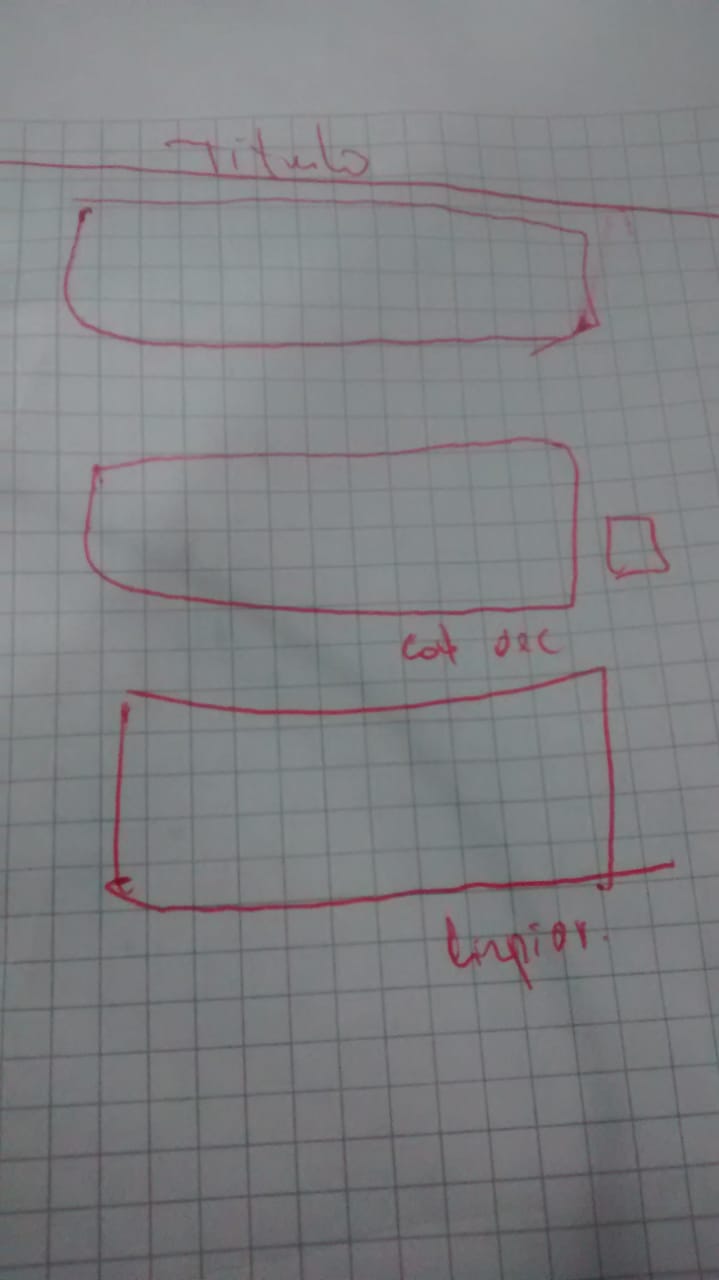 Titulo
cod dec
limpiar.